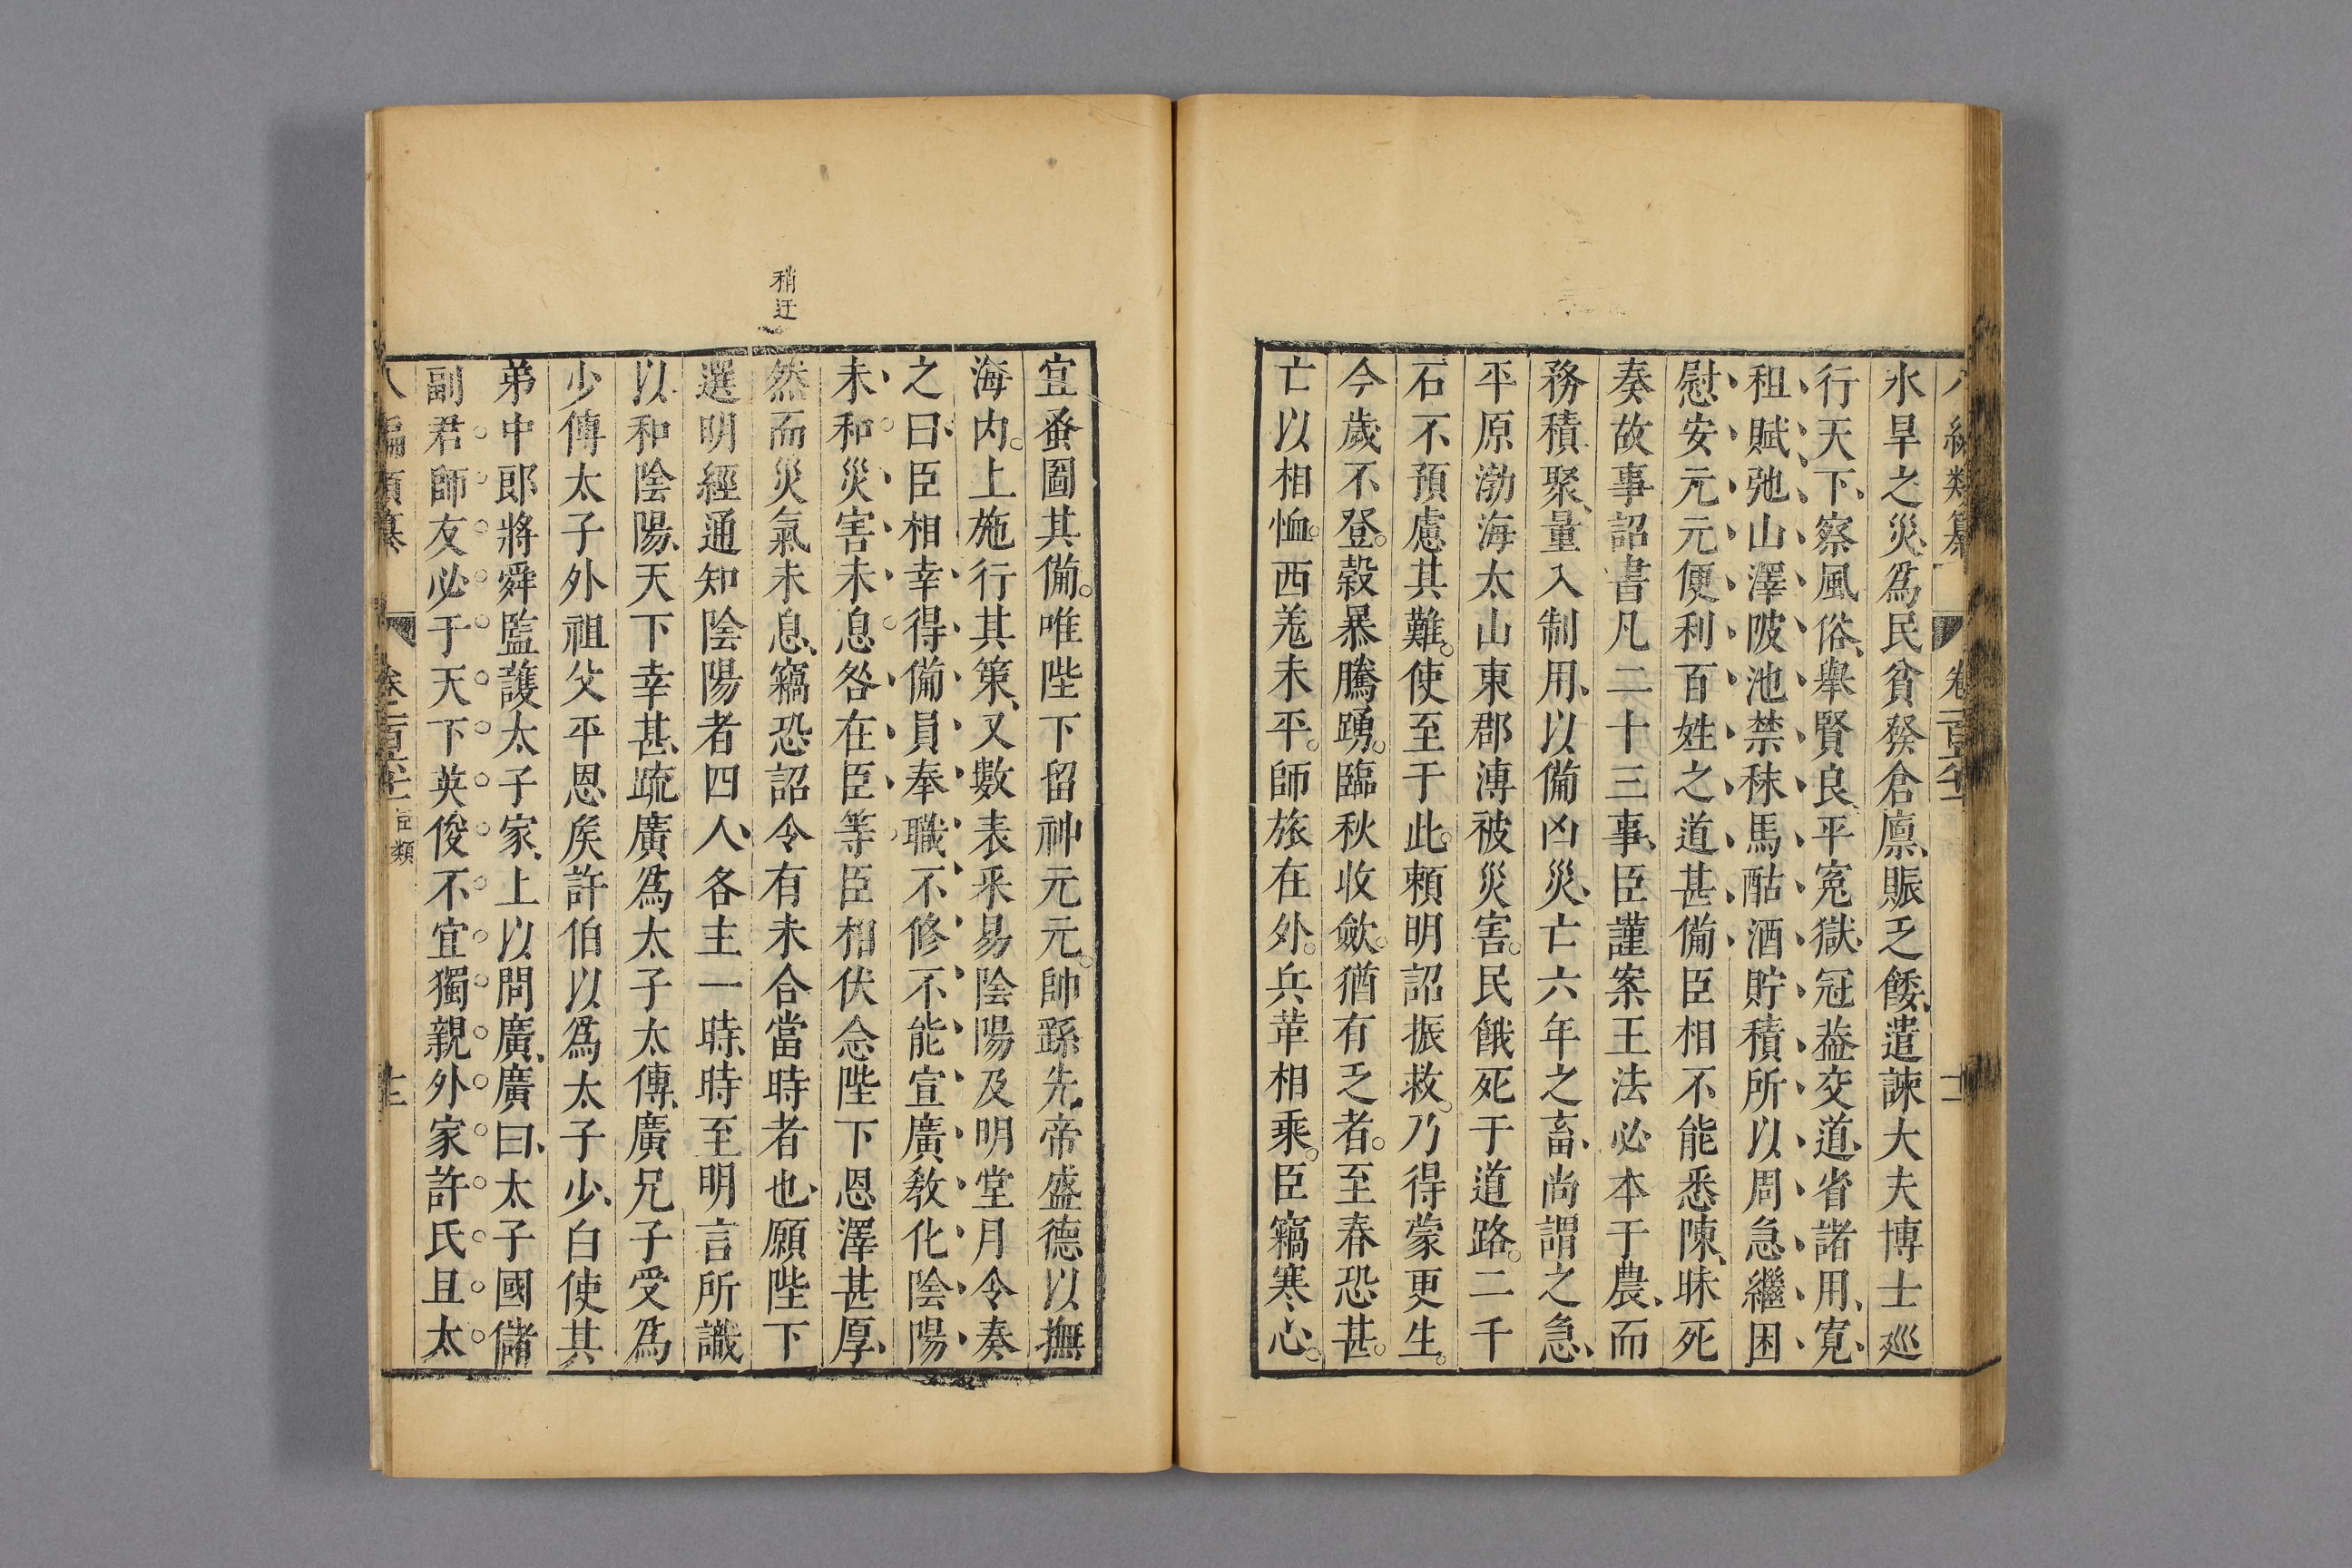 水旱之災、爲民貧發倉廪、賑乏餧、遣諫大夫博士廵
行天下、察風俗、舉賢良、平寃獄、冠葢交道、省諸用、寬
租賦弛山澤陂池禁秣馬酤酒貯積所以周急繼困
慰安元元便利百姓之道甚備臣相不能悉陳、昧死
奏故事詔書凡二十三事、臣謹案王法必本于農、而
務積聚、量入制用、以備凶災、亡六年之畜、尚謂之急、
平原渤海太山東郡溥被災害。民餓死于道路。二千
石不預慮其難。使至于此。賴明詔振救。乃得蒙更生。
今歲不登。穀暴騰踴。臨秋收斂。猶有乏者。至春恐甚。
亡以相恤。西羗未平。師旅在外。兵革相乘。臣竊寒心。
宜蚤圖其備。唯陛下留神元元。帥繇先帝盛德以撫
海内。上施行其策、又數表采易陰陽及明堂月令奏
之曰、臣相幸得備員奉職不修不能宣廣教化陰陽
未和災害未息咎在臣等臣相伏念陛下恩澤甚厚、
然而災氣未息、竊恐詔令有未合當時者也、願陛下
選明經通知陰陽者四人、各主一時、時至明言所識
以和陰陽、天下幸甚、疏廣爲太子太傅、廣兄子受爲
少傅太子外祖父平恩矦許伯以爲太子少、白使其
弟中郎將舜監護太子家、上以問廣、廣曰、太子國儲
副君師友必于天下英俊不宜獨親外家許氏且太
稍迂
臣類